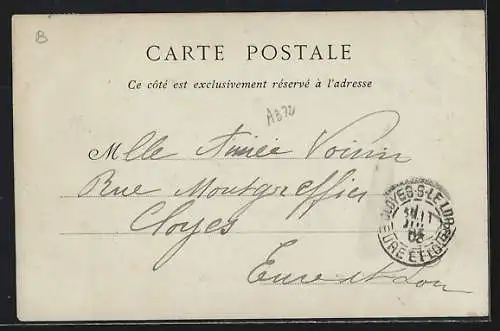 B
CARTE POSTALE
Ce côté est exclusivement réservé à l'adresse
A372
Mlle Aimée Voisin
Rue Montgreffier
Cloyes
Eure et Loir
CLOYES-S-LE-LOIR
EURE ET LOIR